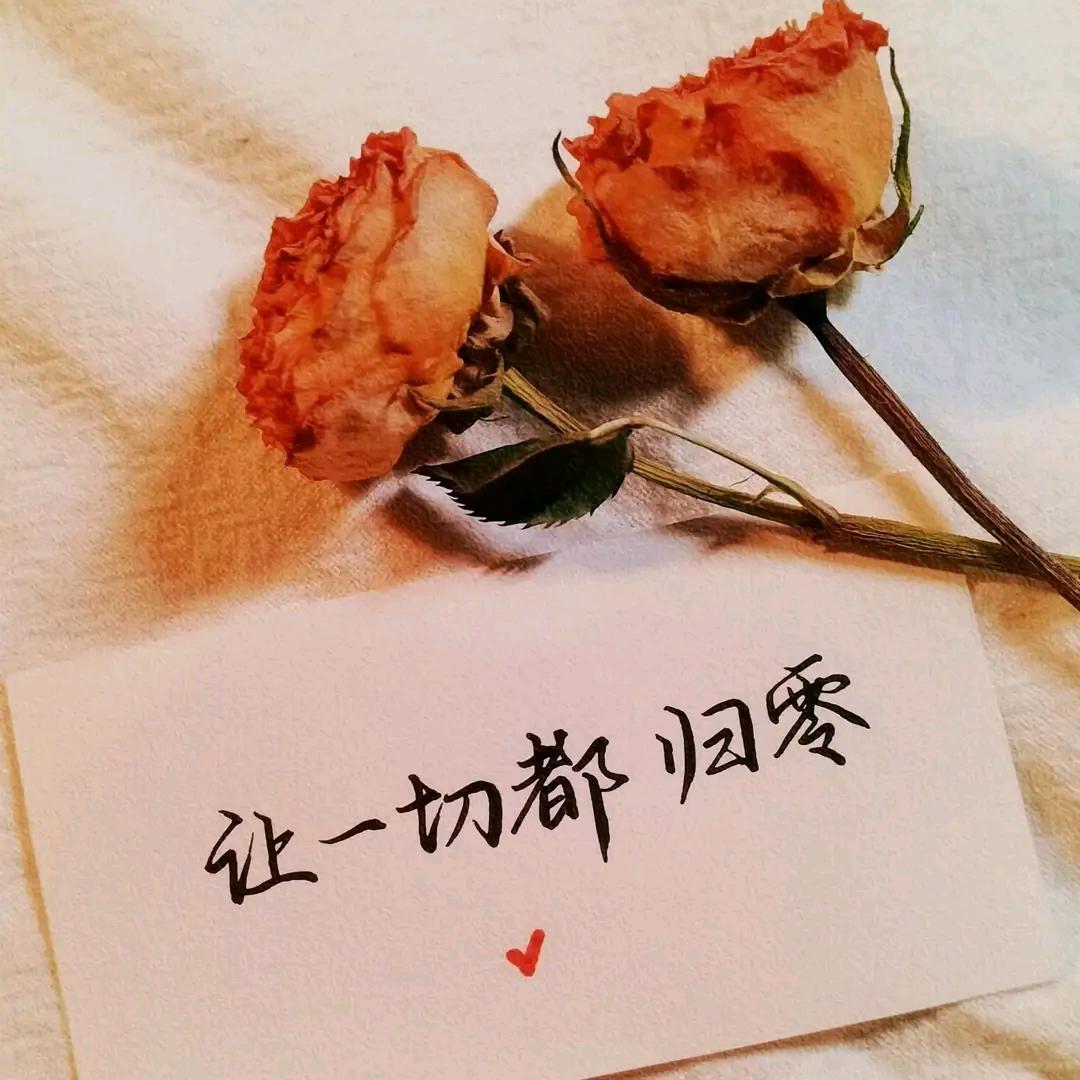 让一切都归零